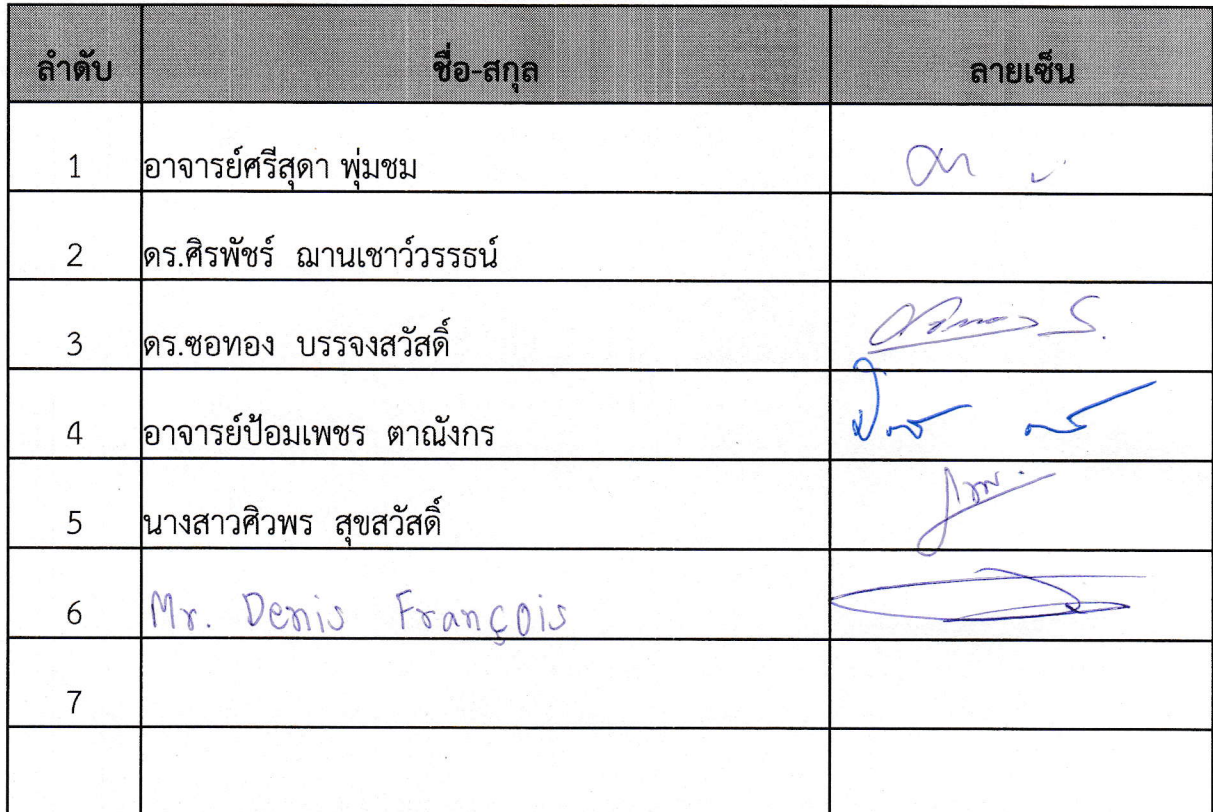 ลำดับ ชื่อ-สกุล ลายเซ็น
1 อาจารย์ศรีสุดา พุ่มชม
2 ดร.ศิรพัชร์ ฌานเชาว์วรรธน์
3 ดร.ซอทอง บรรจงสวัสดิ์
4 อาจารย์ป้อมเพชร ตาณังกร
5 นางสาวศิวพร สุขสวัสดิ์
6 Mr. Denis François
7